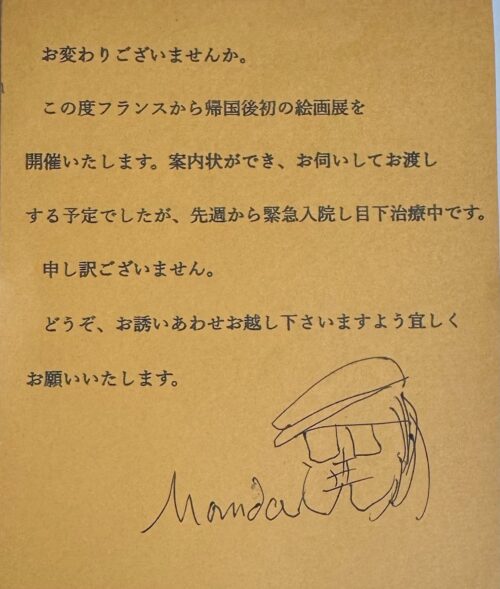 お変わりございませんか。
この度フランスから帰国後初の絵画展を
開催いたします。案内状ができ、お伺いしてお渡し
する予定でしたが、先週から緊急入院し目下治療中です。
申し訳ございません。
どうぞ、お誘いあわせお越し下さいますよう宜しく
お願いいたします。